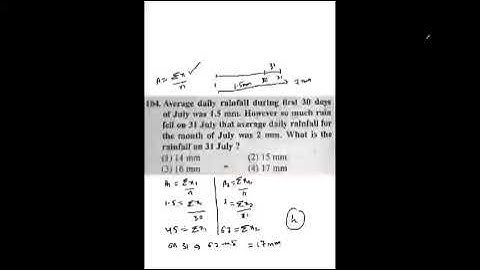 A = Σx/n ✓
1.5mm 30 31 2mm
104. Average daily rainfall during first 30 days
of July was 1.5 mm. However so much rain
fell on 31 July that average daily rainfall for
the month of July was 2 mm. What is the
rainfall on 31 July ?
(1) 14 mm (2) 15 mm
(3) 16 mm (4) 17 mm
A₁ = Σx₁/n A₂ = Σx₂/n
1.5 = Σx₁/30 2 = Σx₂/31
45 = Σx₁ 62 = Σx₂
on 31 ⇒ 62-45 = 17mm